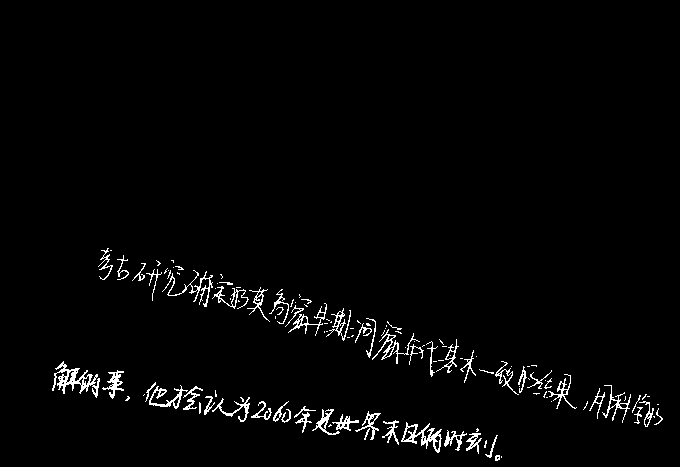 考古研究确定的莫高窟早期洞窟年代基本一致的结果,用科学的
解的事,他才会认为2060年是世界末日的时刻。